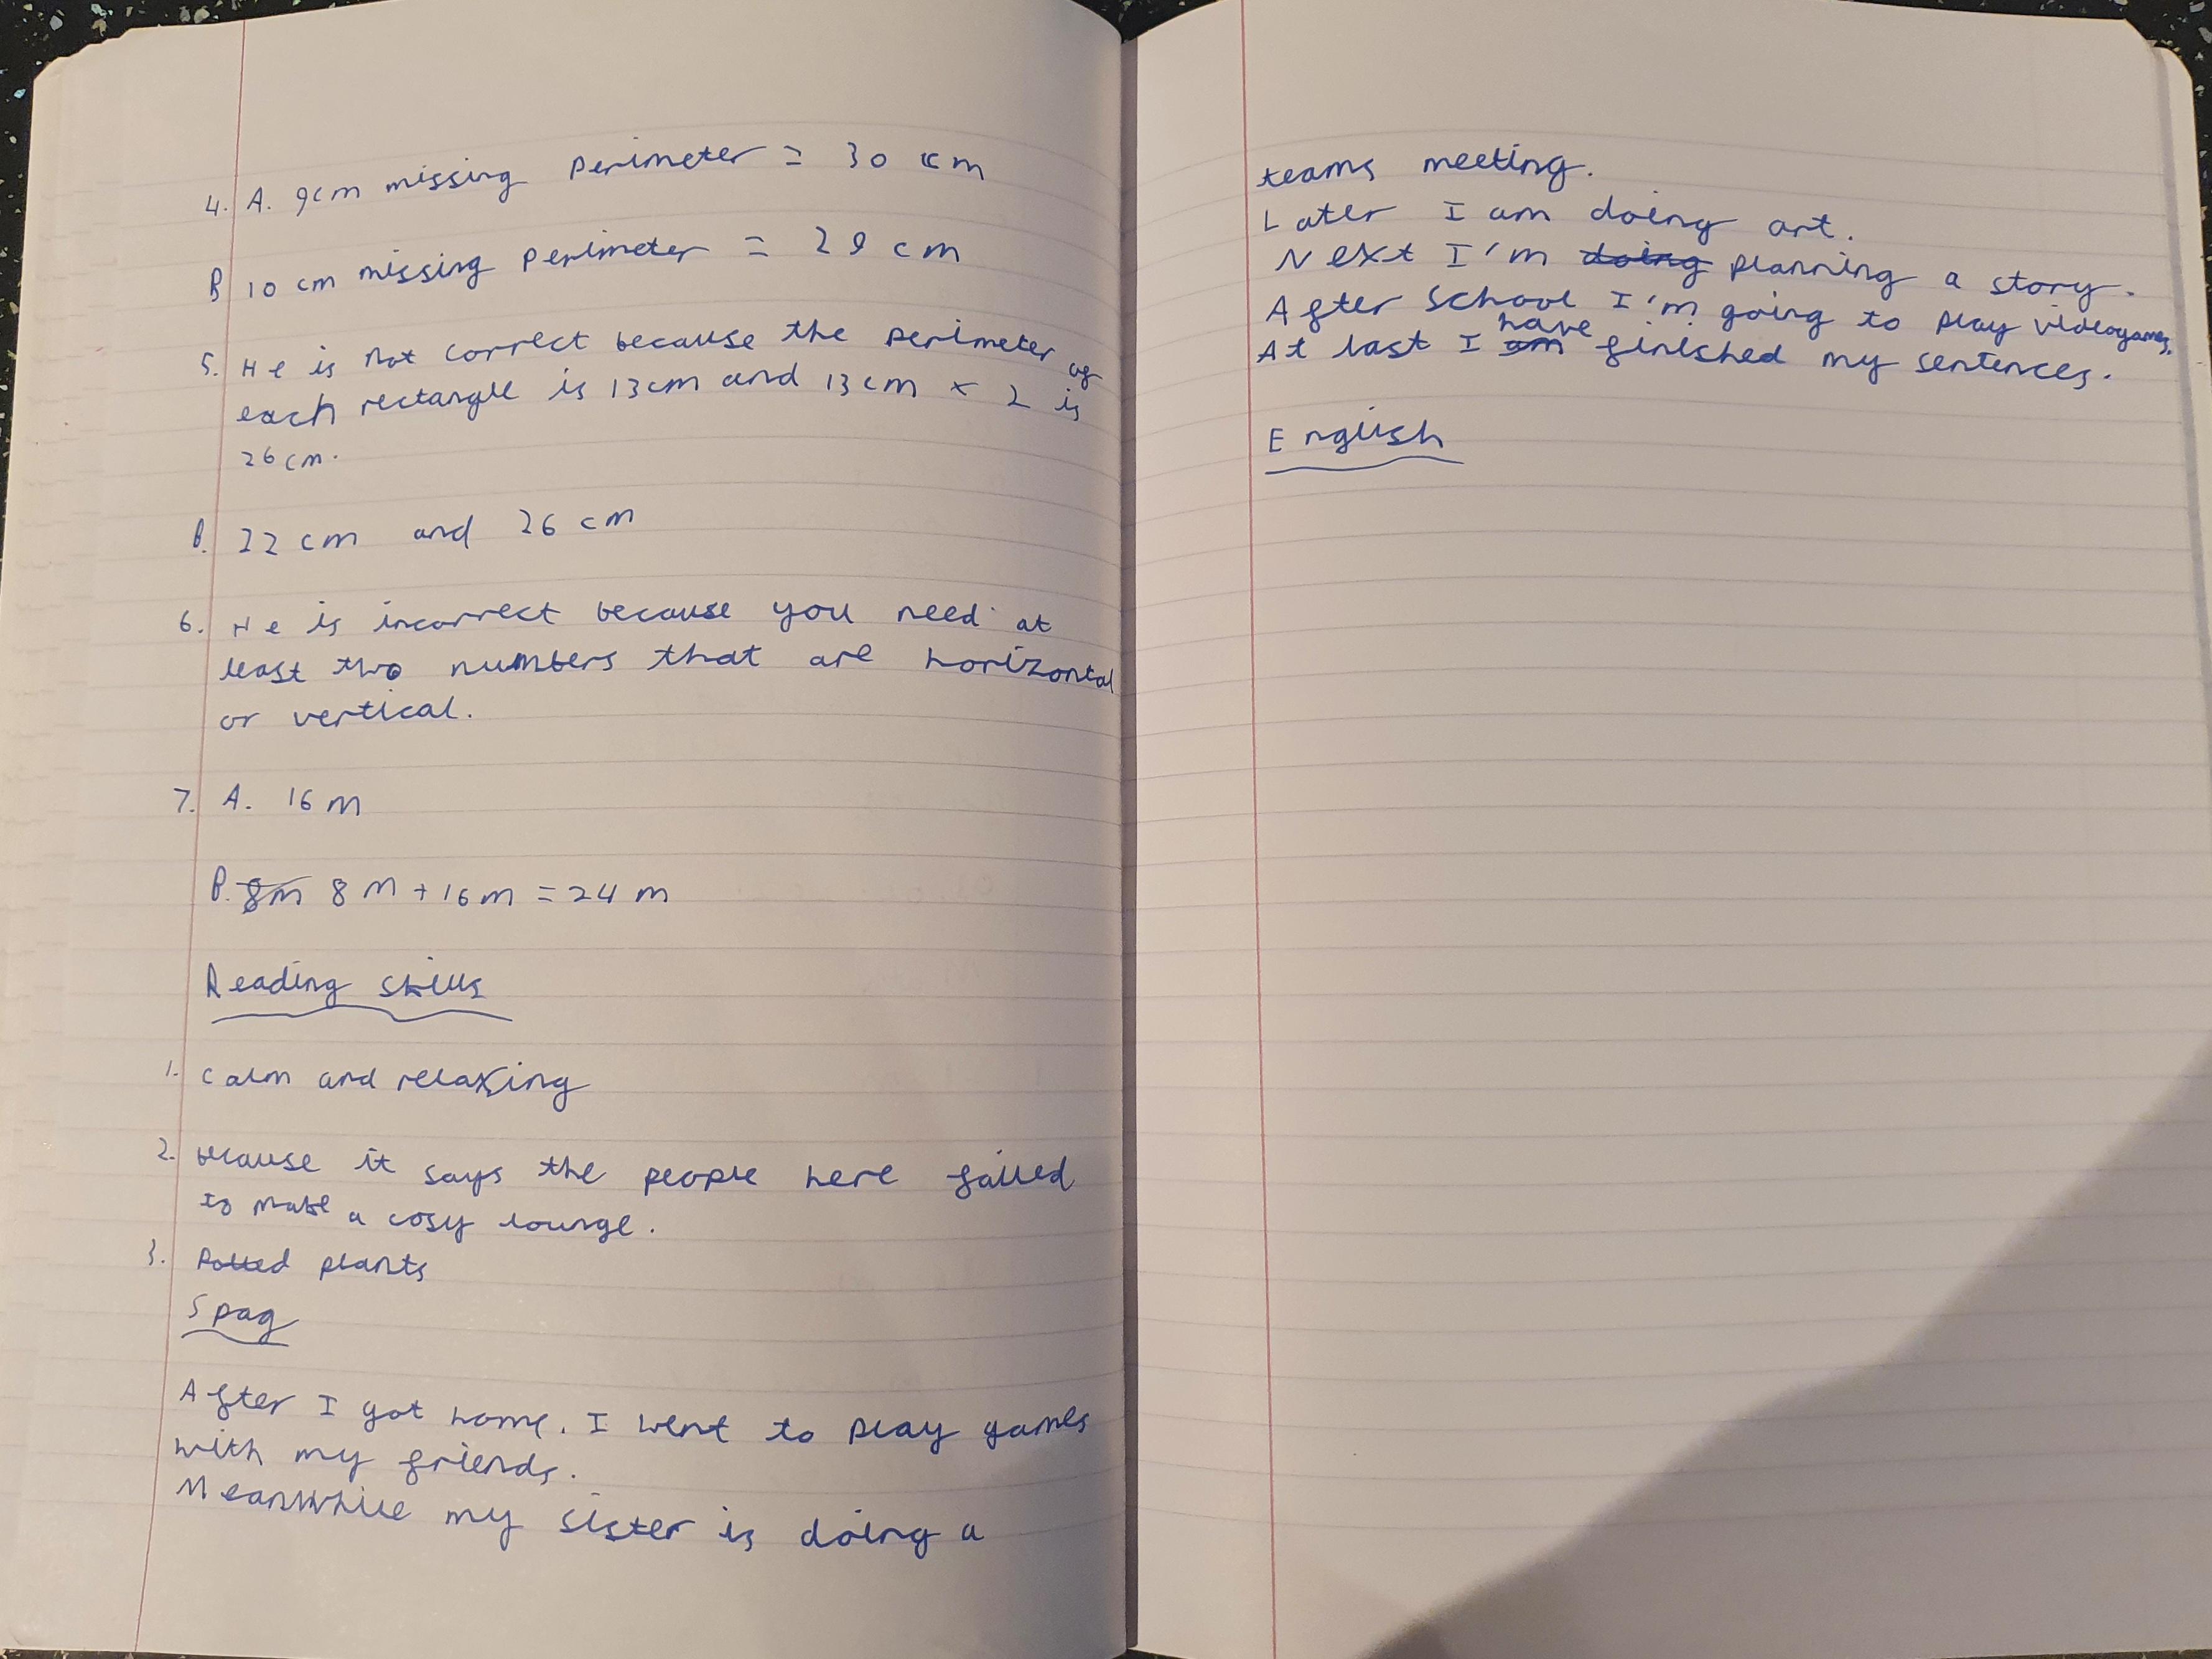 4. A. 9cm missing Perimeter = 30 cm
B 10 cm missing perimeter = 28 cm
5. He is not correct because the perimeter of
each rectangle is 13cm and 13cm x 2 is
26cm.
B. 22 cm and 26 cm
6. He is incorrect because you need at
least two numbers that are horizontal
or vertical.
7. A. 16 m
B. 8m 8 m + 16 m = 24 m
Reading skills
1. Calm and relaxing
2. because it says the people here failed
to make a cosy lounge.
3. Potted plants
Spag
After I got home. I went to play games
with my friends.
Meanwhile my sister is doing a
teams meeting.
Later I am doing art.
Next I'm doing planning a story.
After school I'm going to play videogames.
At last I am have finished my sentences.
English